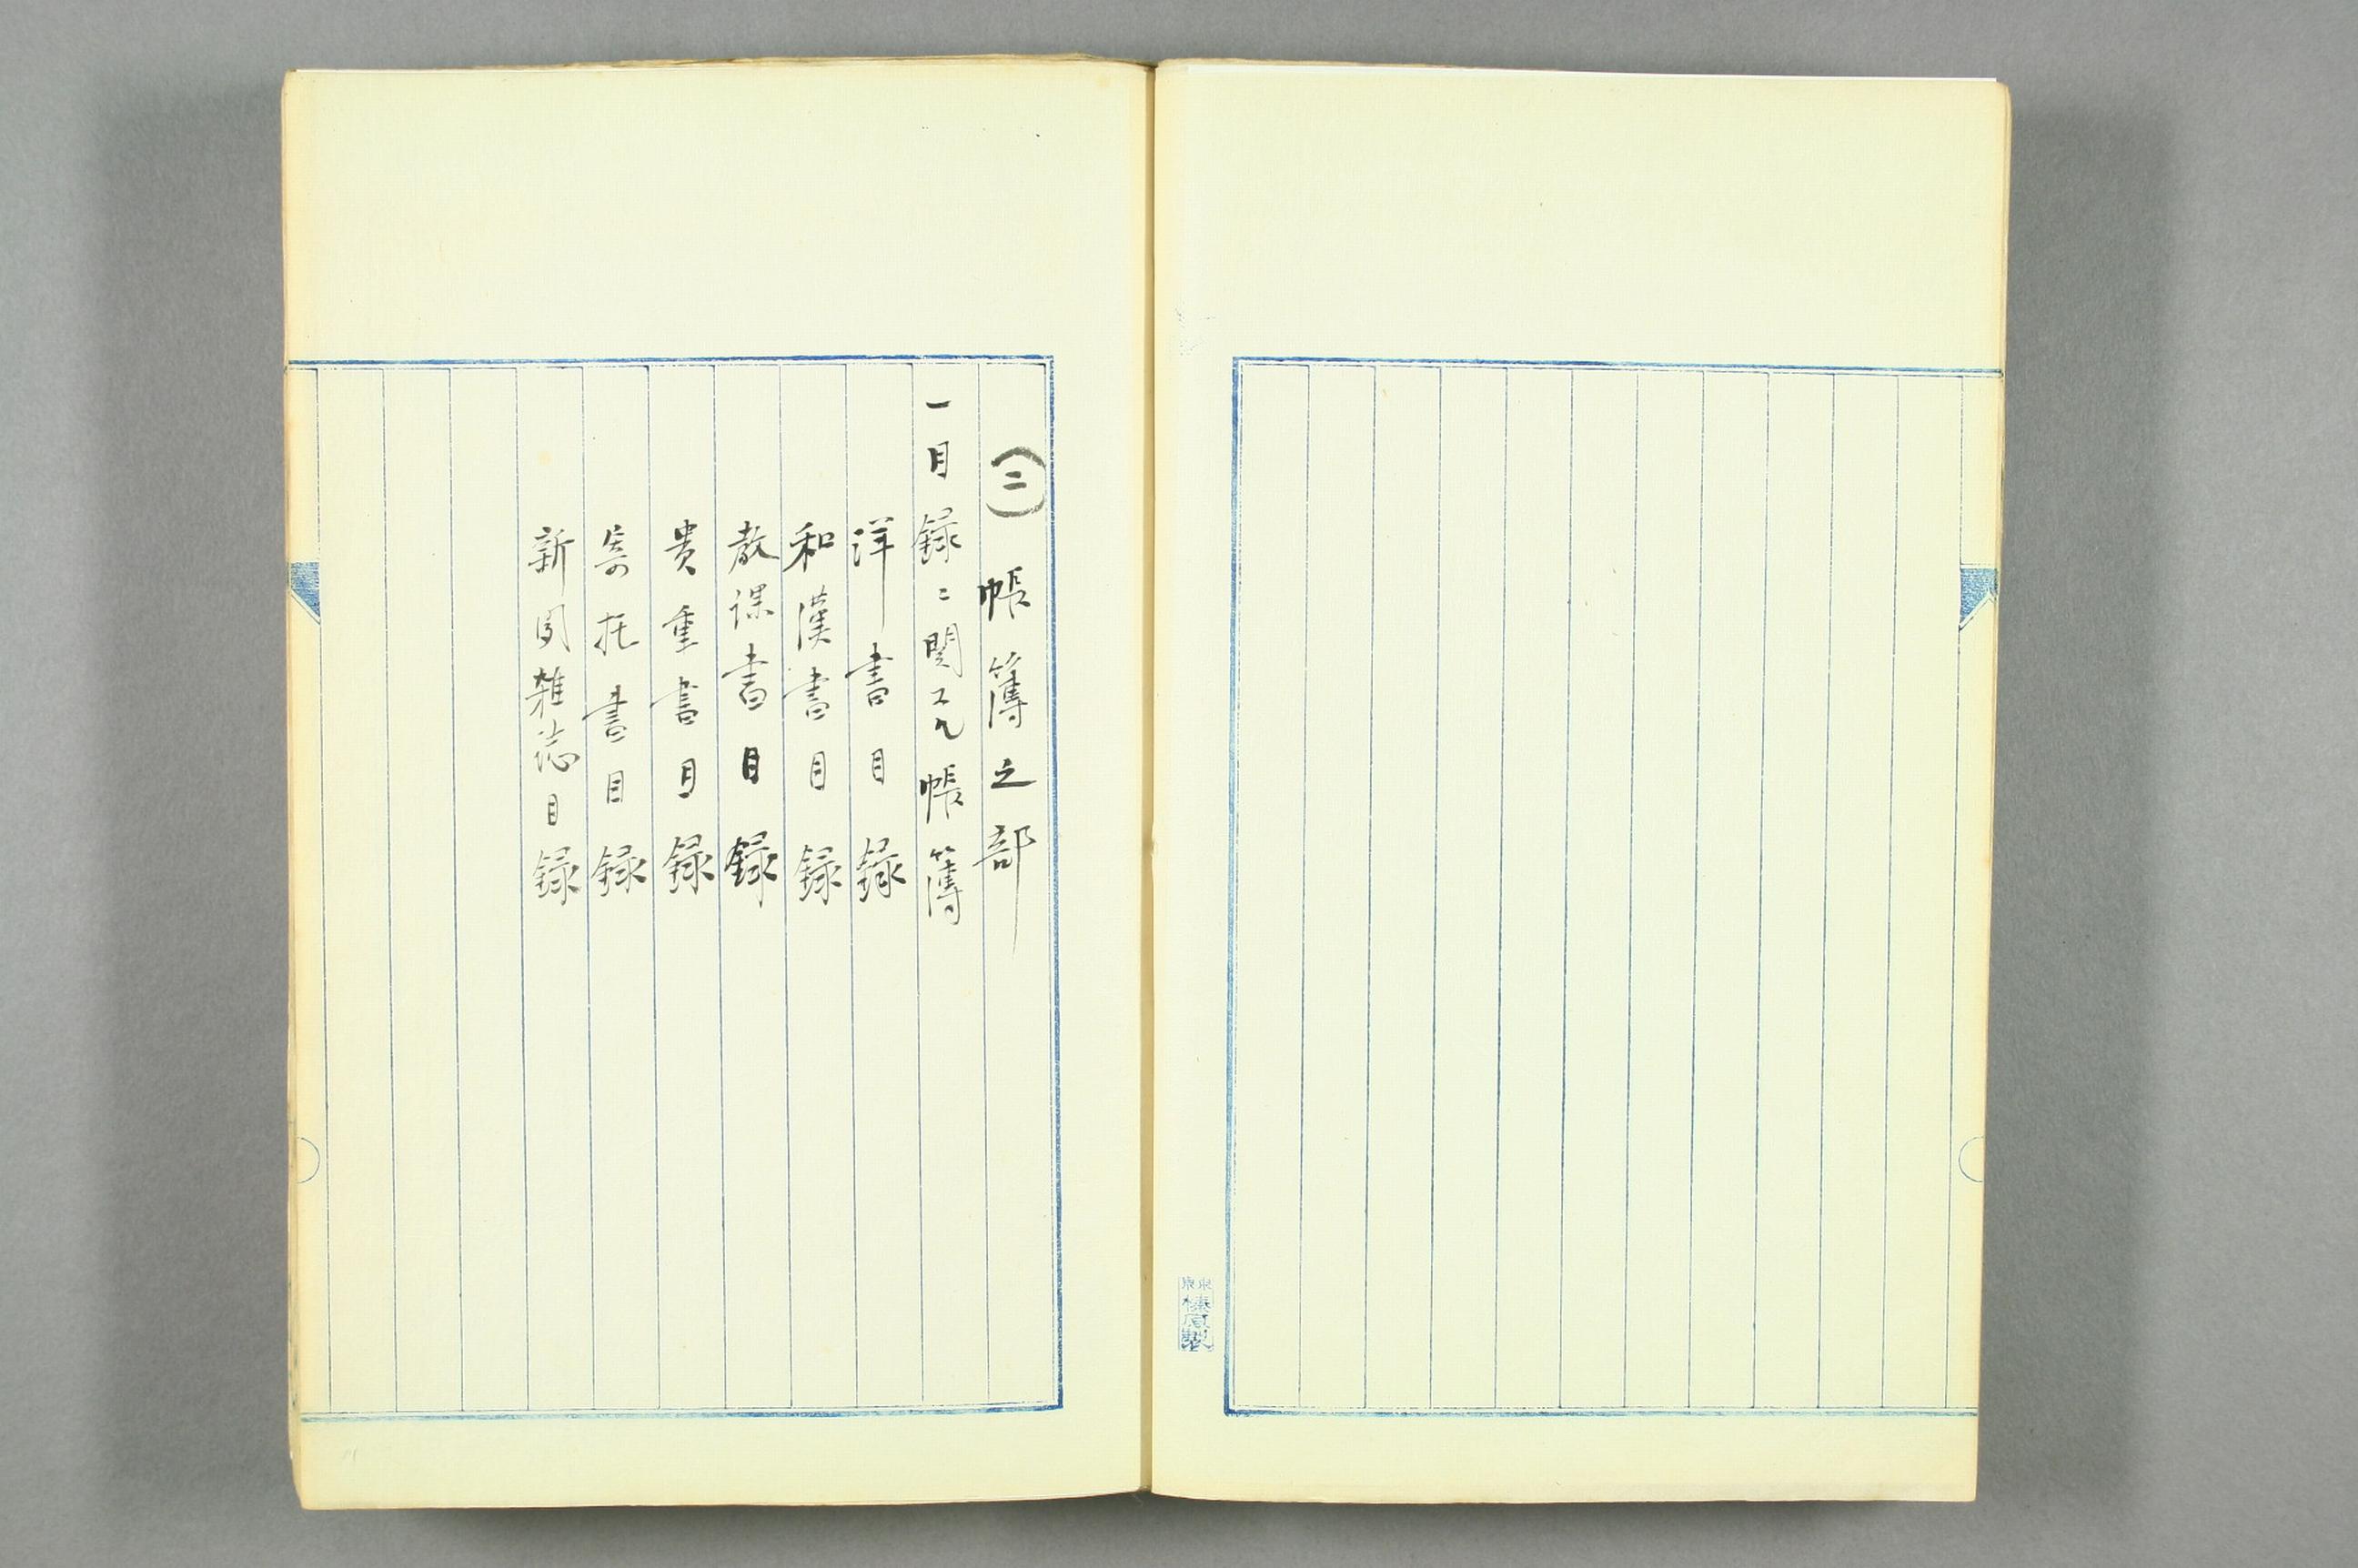 東京
榛原製
(二) 帳簿之部
一目録ニ関スル帳簿
洋書目録
和漢書目録
教課書目録
貴重書目録
寄托書目録
新聞雑誌目録